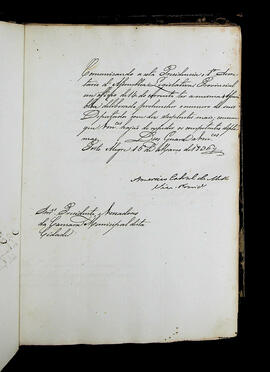 Communicando a esta Presidencia, o 1º Secre
tario d'Assemblea Legislativa Provincial
em officio de 14 do corrente ter a mesma Assem
blea deliberado preencher o numero de seus
Deputados com os supplentes mais, cumpre
que Vmces hajão de expedir os competentes diplo
mas. Deos Guarde a Vmces
Porto Alegre 15 de Março de 1836
Americo Cabral de Mello
Snres Presidente, e Vereadores
da Camara Municipal desta
Cidade